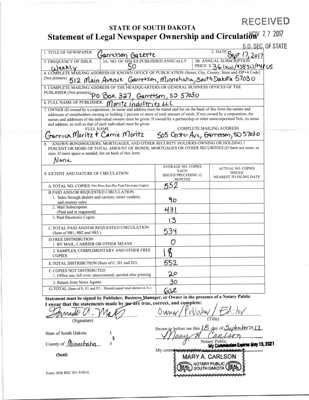 RECEIVED
STATE OF SOUTH DAKOTA
Statement of Legal Newspaper Ownership and Circulation
27 2017
S.D. SEC. OF STATE
1. TITLE OF NEWSPAPER
Garretson Gazette
2. DATE
Sept 17, 2017
3. FREQUENCY OF ISSUE
Weekly
3A. NO. OF ISSUES PUBLISHED ANNUALLY
50
3B. ANNUAL SUBSCRIPTION
PRICE: $
4. COMPLETE MAILING ADDRESS OF KNOWN OFFICE OF PUBLICATION (Street, City, County, State and ZIP+4 Code)
(Not printers) 512 Main Avenue Garretson, Minnehaha, South Dakota 57030
5. COMPLETE MAILING ADDRESS OF THE HEADQUARTERS OR GENERAL BUSINESS OFFICES OF THE
PUBLISHER (Not printers) PO Box 327, Garretson, SD 57030
6. FULL NAME OF PUBLISHER: Moritz Industries LLC
7. OWNER (If owned by a corporation, its name and address must be stated and also
addresses of stockholders owning or holding 1 percent or more of total amount of stock. If not owned by a corporation, the
names and addresses of the individual owners must be given. If owned by a partnership or other unincorporated firm, its name
and address, as well as that of each individual must be given.
FULL NAME
COMPLETE MAILING ADDRESS
Garrick Moritz & Carrie Moritz
505 Center Ave, Garretson, SD 57030
8. KNOWN BONDHOLDERS, MORTGAGES, AND OTHER SECURITY HOLDERS OWNING OR HOLDING 1
PERCENT OR MORE OF TOTAL AMOUNT OF BONDS, MORTGAGES OR OTHER SECURITIES (If there are none, so
state. If more space is needed, list on back of this form.
None
9. EXTENT AND NATURE OF CIRCULATION
AVERAGE NO. COPIES
EACH
ISSUED PRECEDING 12
MONTHS
ACTUAL NO. COPIES
ISSUED
NEAREST TO FILING DATE
A. TOTAL NO. COPIES
552
B. PAID AND/OR REQUESTED CIRCULATION
1. Sales through dealers and carriers, street vendors,
and counter sales.
90
2. Mail Subscription
(Paid and/or requested)
431
3. Paid Electronic Copies
13
C. TOTAL PAID AND/OR REQUESTED CIRCULATION
(Sum of 9B1, 9B2 and 9B3.)
534
D. FREE DISTRIBUTION
1. BY MAIL, CARRIER OR OTHER MEANS
0
2. SAMPLES, COMPLIMENTARY AND OTHER FREE
COPIES
18
E. TOTAL DISTRIBUTION (Sum of C, D1 and D2)
552
F. COPIES NOT DISTRIBUTED
1. Office use, left over, unaccounted, spoiled after printing
20
2. Return from News Agents
30
G. TOTAL (Sum of E, F1 and F2 - Should equal total shown in A.)
602
Statement must be signed by Publisher, Business Manager, or Owner in the presence of a Notary Public
I swear that the statements made by me are true, correct, and complete:
Owner / Publisher / Editor
(Signature)
(Title)
Sworn to before me this 18 day of September 2017
Mary A. Carlson
State of South Dakota )
§
County of Minnehaha )
Notary Public
My Commission Expires May 15, 2021
(Seal)
MARY A. CARLSON
NOTARY PUBLIC
SOUTH DAKOTA
SEAL
SEAL
Form: SOS REC 051 9/2016